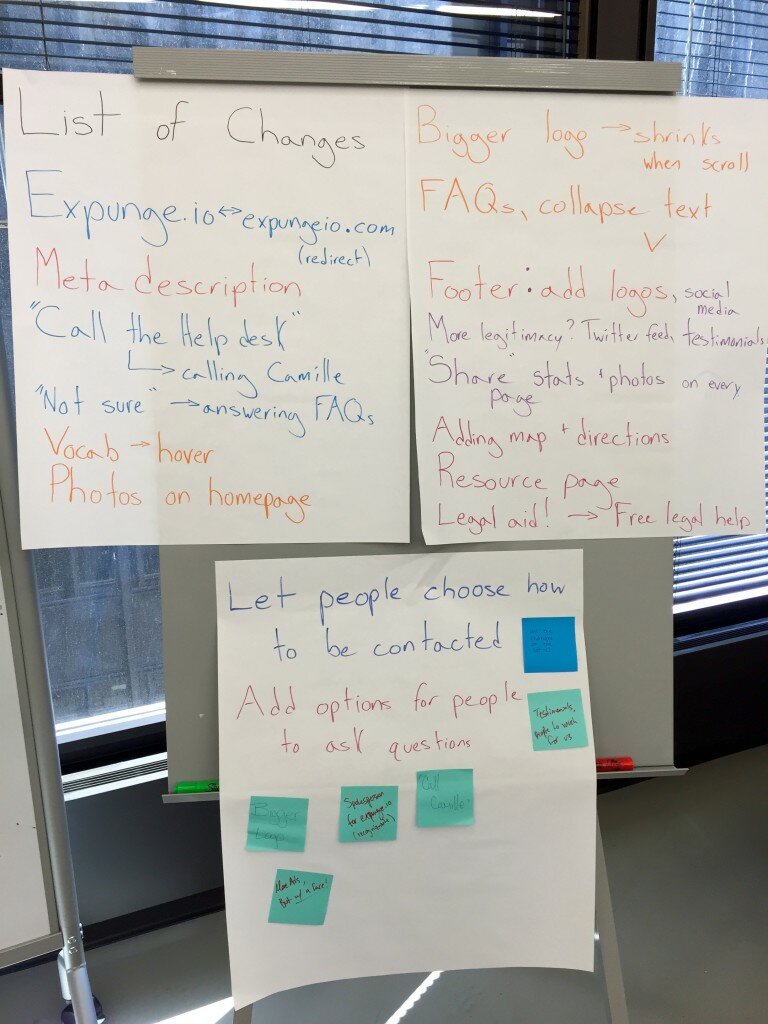 List of Changes
Expunge.io ↔ expungeio.com
(redirect)
Meta description
"Call the Help desk"
↳ calling Camille
"Not sure" → answering FAQs
Vocab → hover
Photos on homepage
Bigger logo → shrinks
when scroll
FAQs, collapse text
Footer: add logos, social
media
More legitimacy? Twitter feed, testimonials
"Share" stats + photos on every
page
Adding map + directions
Resource page
Legal aid! → Free legal help
Let people choose how
to be contacted
Add options for people
to ask questions
Testimonials,
people to work
for v3
Bigger
Logo
Spokesperson
for expunge.io
(recognizable)
"Call
Camille"
More Ads,
But w/ a face!